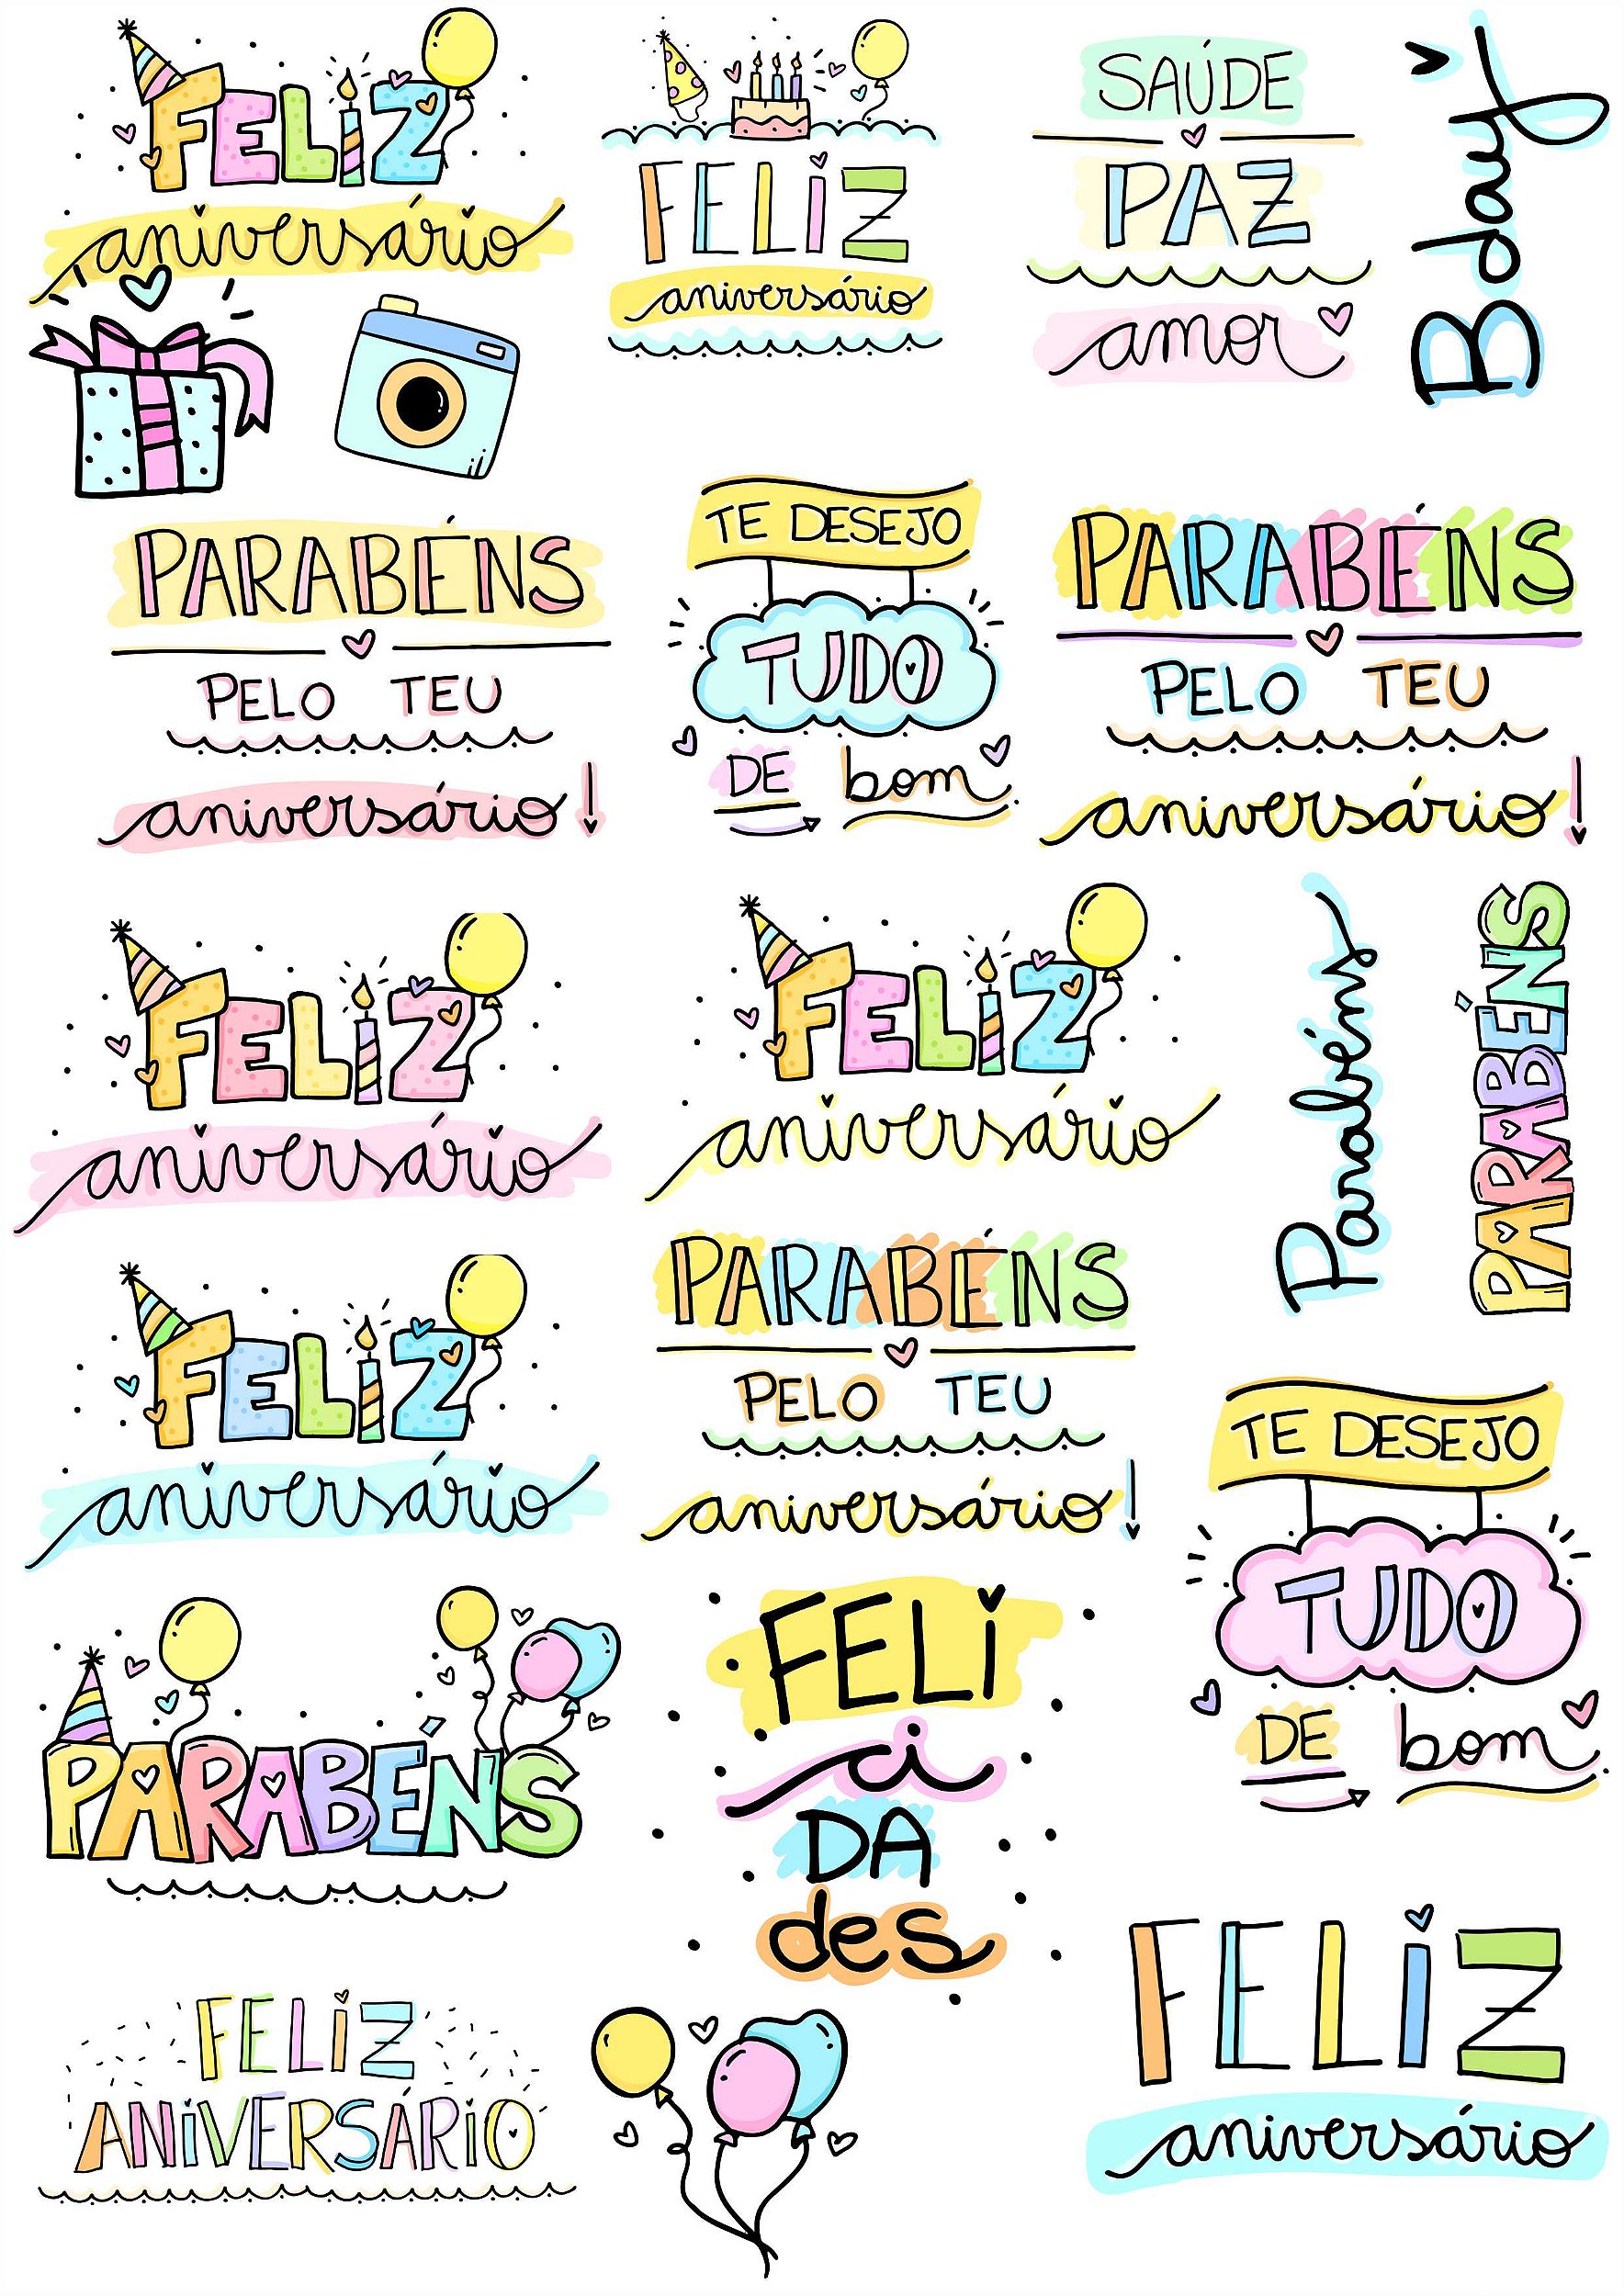 FELiZ
aniversário
FELiZ
aniversário
SAÚDE
PAZ
amor
Bday
PARABÉNS
PELO TEU
aniversário!
TE DESEJO
TUDO
DE bom
PARABÉNS
PELO TEU
aniversário!
FELiZ
aniversário
FELiZ
aniversário
Parabéns
PARABÉNS
FELiZ
aniversário
PARABÉNS
PELO TEU
aniversário!
TE DESEJO
TUDO
DE bom
PARABÉNS
FELi
ci
DA
des
FELiZ
ANiVERSÁRiO
FELiZ
aniversário